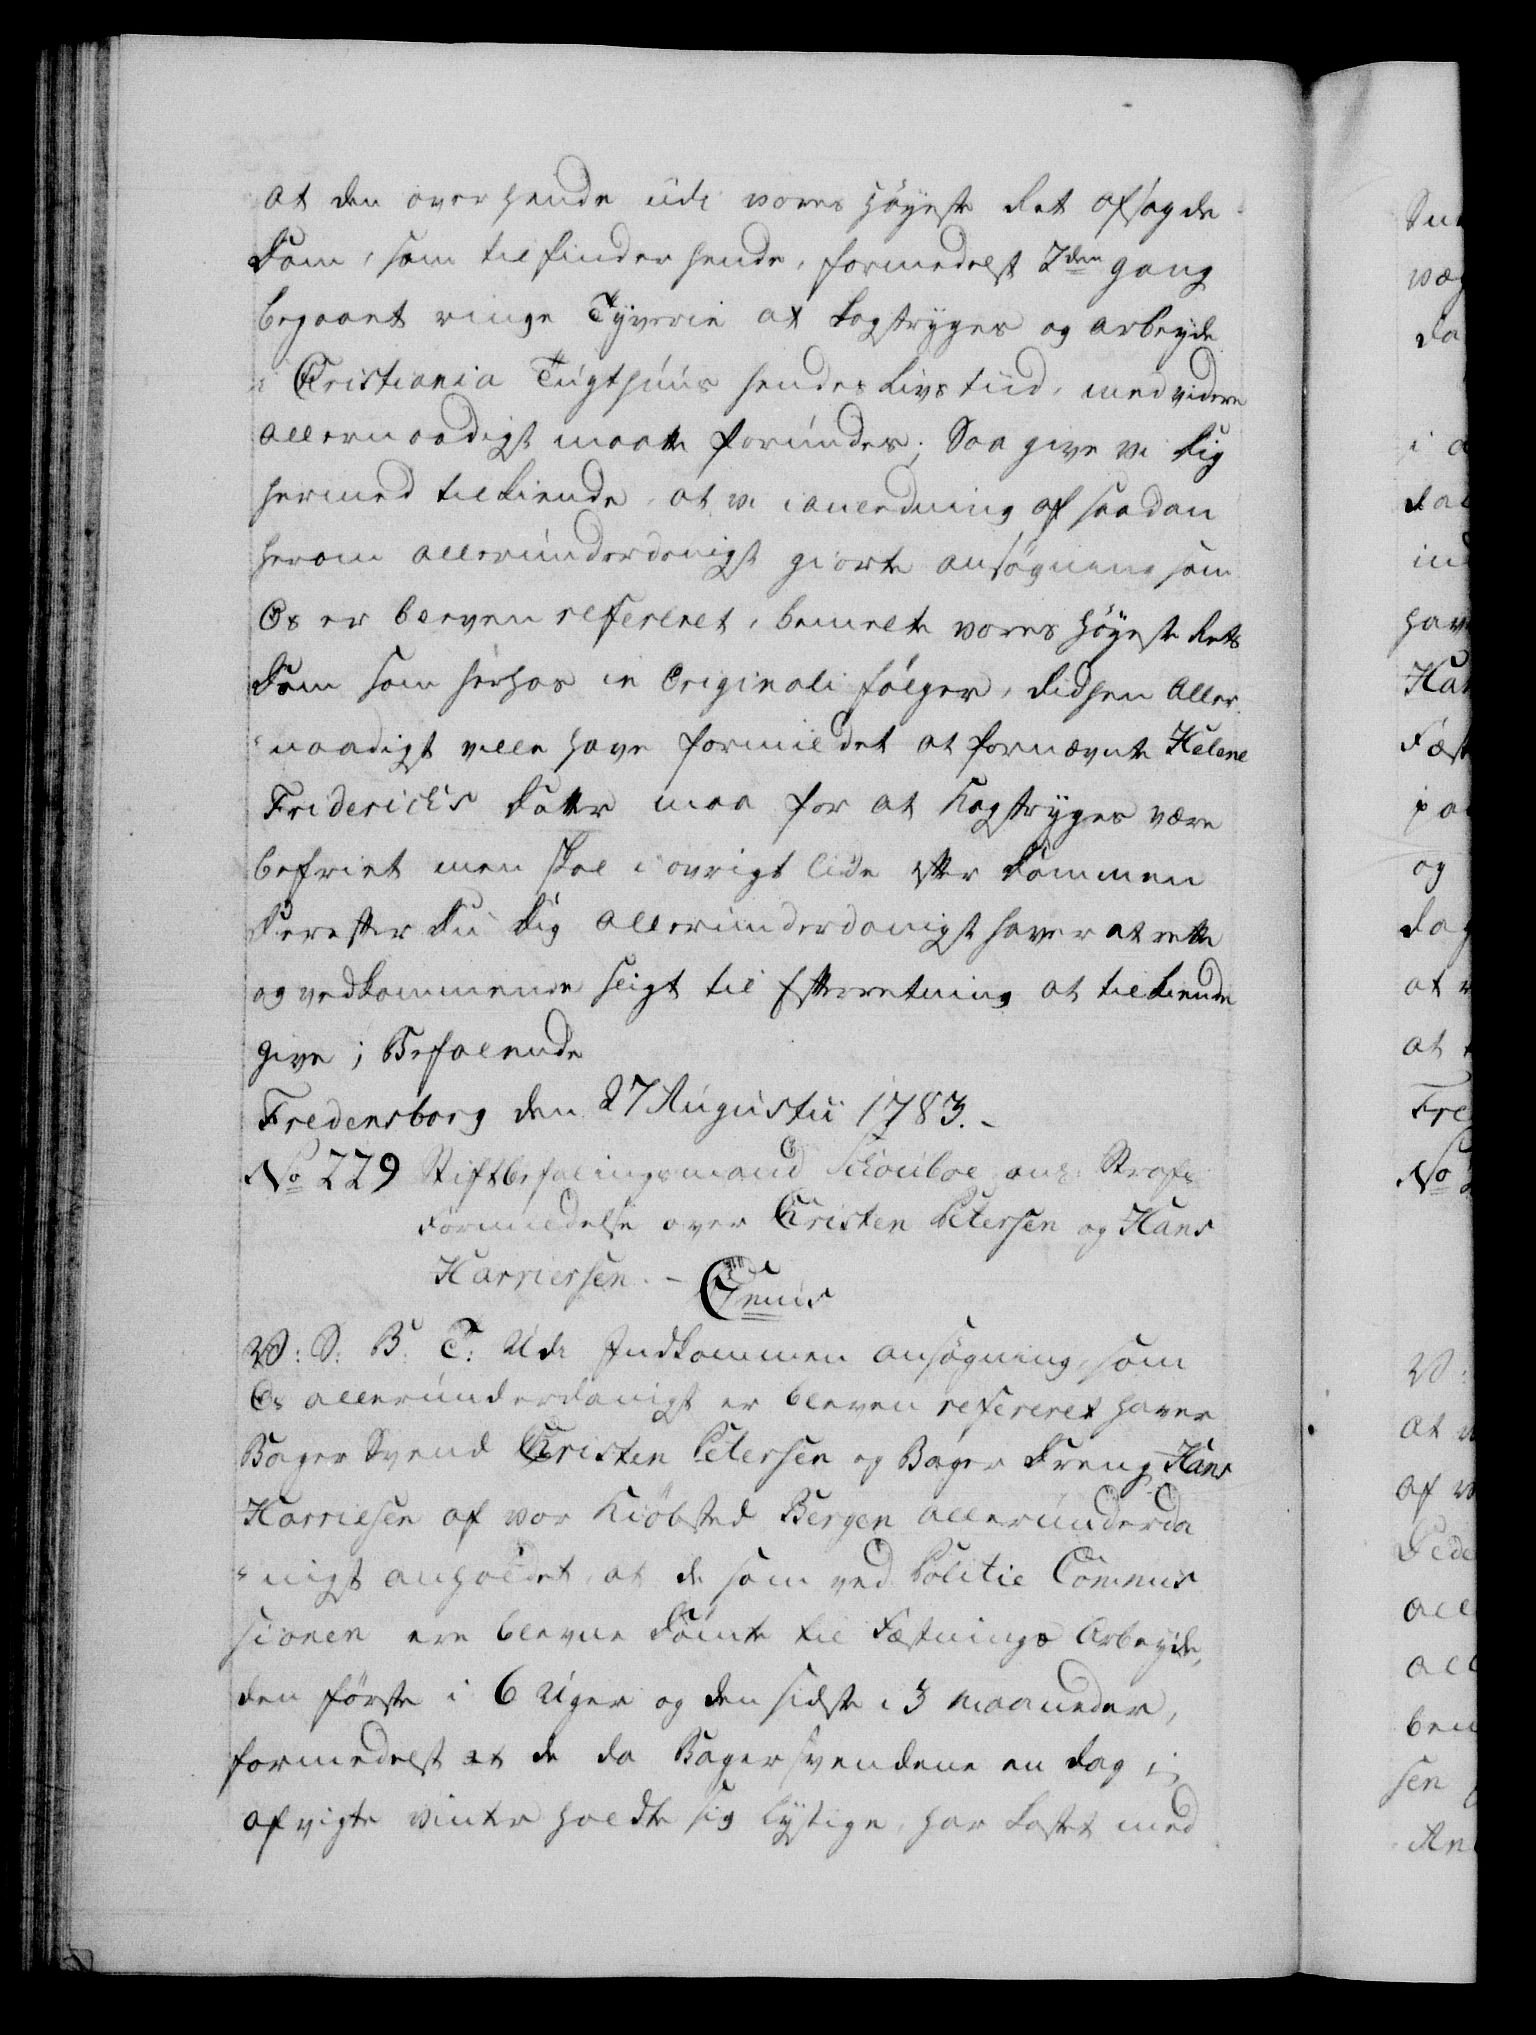 at den over hende udi vores Høyeste Ret afsagde
Dom, som tilfinder hende, formedelst 2den gang
begaaet ringe Tyverie at kagstryges og arbeyde
i Christiania Tugthuus hendes Livs tiid, med videre
allernaadigst maatte forundes; Saa give vi Dig
hermed tilkiende, at vi i anledning af saadan
herom allerunderdanigst giorte ansøgning som
Os er bleven refereret, bemelte vores Høyeste Rets
Dom som herhos in Originali følger, didhen Aller-
naadigst ville have formildet at fornævnte Helene
Friderichs Datter maa for at Kagstryges være
befriet men skal i øvrigt lide efter Dommen
Derefter Du Dig allerunderdanigst haver at rette
og vedkommende sligt til Efterretning at tilkiende
give; Befalende
Fredensborg den 27 Augustii 1783.
No 229 Stiftbefalingsmand Schouboe ang: Strafs
Formildelse over Christen Petersen og Hans
Harriersen. - Genus
V: S: B. T: Udi Indkommen ansøgning, som
Os allerunderdanigst er bleven refereret haver
Bager Svend Christen Petersen og Bager Dreng Hans
Harriesen af vor Kiøbsted Bergen allerunderda
nigst anholdet, at de som ved Politie Commis
sionen ere blevne dømte til Fæstnings Arbeyde,
den første i 6 Uger og den sidste i 3 maaneder,
formedelst at de da Bagersvendene en dag i
afvigte vinter holdte sig lystige, har kastet med